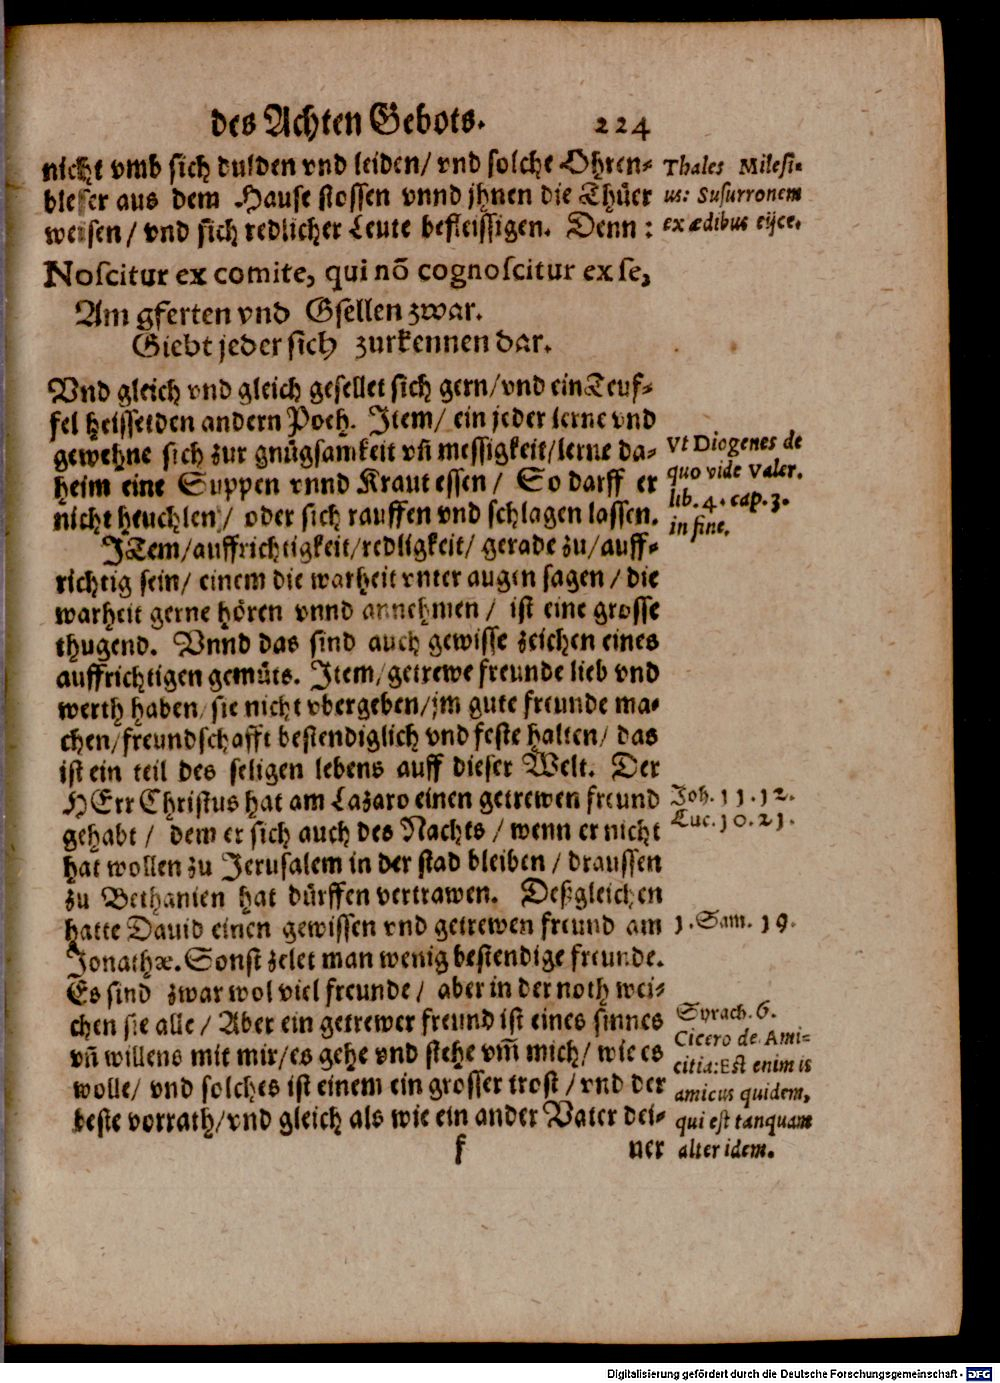 des Achten Gebots. 224
nicht vmb sich dulden vnd leiden/ vnd solche Ohren-
bleser aus dem Hause stossen vnnd jhnen die Thüer
weisen/ vnd sich redlicher Leute befleissigen. Denn:
Thales Milesi-
us: Susurronem
ex ædibus eijce.
Noscitur ex comite, qui nõ cognoscitur ex se,
Am gferten vnd Gsellen zwar.
Giebt jeder sich zurkennen dar.
Vnd gleich vnd gleich gesellet sich gern/vnd ein Teuf-
fel heisset den andern Poch. Item/ ein jeder lerne vnd
gewehne sich zur gnügsamkeit vñ messigkeit/lerne da-
heim eine Suppen vnnd Kraut essen/ So darff er
nicht heuchlen/ oder sich rauffen vnd schlagen lassen.
Vt Diogenes de
quo vide Valer.
lib. 4. cap. 3.
in fine.
ITem/auffrichtigkeit/redligkeit/ gerade zu/auff-
richtig sein/ einem die warheit vnter augen sagen/ die
warheit gerne hören vnnd annehmen/ ist eine grosse
thugend. Vnnd das sind auch gewisse zeichen eines
auffrichtigen gemüts. Item/getrewe freunde lieb vnd
werth haben/ sie nicht vbergeben/jm gute freunde ma-
chen/freundschafft bestendiglich vnd feste halten/ das
ist ein teil des seligen lebens auff dieser Welt. Der
HErr Christus hat am Lazaro einen getrewen freund
gehabt/ dem er sich auch des Nachts/ wenn er nicht
hat wollen zu Jerusalem in der stad bleiben/ draussen
zu Bethanien hat dürffen vertrawen. Deßgleichen
hatte Dauid einen gewissen vnd getrewen freund am
Jonathæ. Sonst zelet man wenig bestendige freunde.
Es sind zwar wol viel freunde/ aber in der noth wei-
chen sie alle/ Aber ein getrewer freund ist eines sinnes
vñ willens mit mir/es gehe vnd stehe vm̃ mich/ wie es
wolle/ vnd solches ist einem ein grosser trost/ vnd der
beste vorrath/vnd gleich als wie ein ander Vater dei-
Joh. 11. 12.
Luc. 10. 21.
1. Sam. 19.
Syrach. 6.
Cicero de Ami-
citia: Est enim is
amicus quidem,
qui est tanquam
alter idem.
f ner
Digitalisierung gefördert durch die Deutsche Forschungsgemeinschaft - DFG